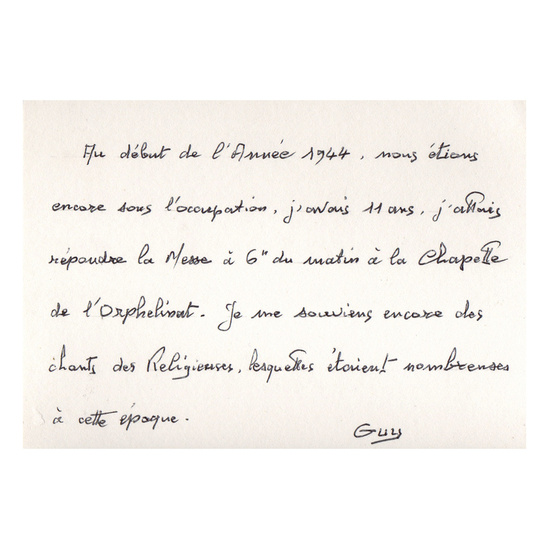 Au début de l'Année 1944, nous étions
encore sous l'occupation, j'avais 11 ans, j'allais
répondre la Messe à 6" du matin à la Chapelle
de l'Orphelinat. Je me souviens encore des
chants des Religieuses, lesquelles étaient nombreuses
à cette époque.
Guy